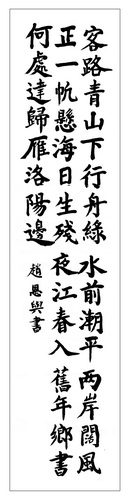 客路青山下行舟綠水前潮平兩岸闊風
正一帆懸海日生殘夜江春入舊年鄉書
何處達歸雁洛陽邊
趙恩與書